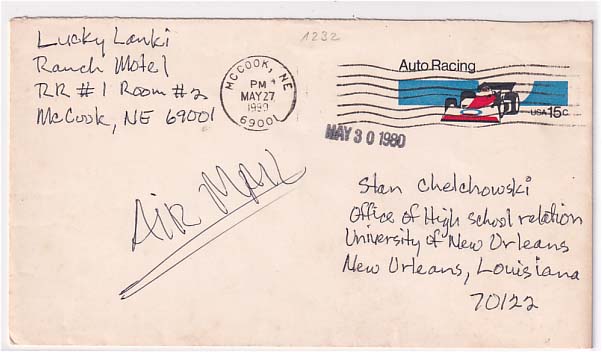 Lucky Lanki
Ranch Motel
RR #1 Room #2
McCook, NE 69001
1232
McCOOK, NE
PM
MAY 27
1980
69001
Auto Racing
USA 15c
MAY 30 1980
AIR MAIL
Stan Chelchowski
Office of High school relation
University of New Orleans
New Orleans, Louisiana
70122